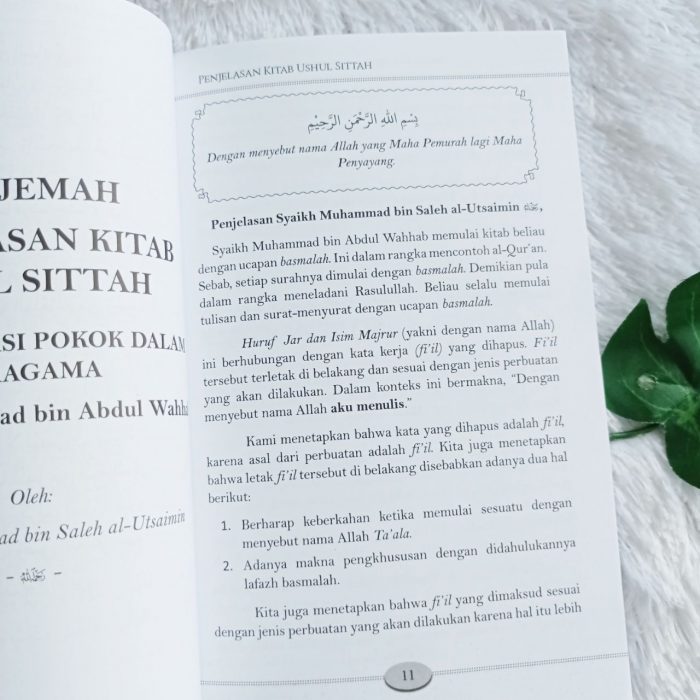 JEMAH
ASAN KITAB
L SITTAH
SI POKOK DALAM
AGAMA
ad bin Abdul Wahha
Oleh:
ad bin Saleh al-Utsaimin
Penjelasan Kitab Ushul Sittah
بِسْمِ اللهِ الرَّحْمَنِ الرَّحِيْمِ
Dengan menyebut nama Allah yang Maha Pemurah lagi Maha
Penyayang.
Penjelasan Syaikh Muhammad bin Saleh al-Utsaimin رحمه الله,
Syaikh Muhammad bin Abdul Wahhab memulai kitab beliau
dengan ucapan basmalah. Ini dalam rangka mencontoh al-Qur'an.
Sebab, setiap surahnya dimulai dengan basmalah. Demikian pula
dalam rangka meneladani Rasulullah. Beliau selalu memulai
tulisan dan surat-menyurat dengan ucapan basmalah.
Huruf Jar dan Isim Majrur (yakni dengan nama Allah)
ini berhubungan dengan kata kerja (fi'il) yang dihapus. Fi'il
tersebut terletak di belakang dan sesuai dengan jenis perbuatan
yang akan dilakukan. Dalam konteks ini bermakna, “Dengan
menyebut nama Allah aku menulis.”
Kami menetapkan bahwa kata yang dihapus adalah fi'il,
karena asal dari perbuatan adalah fi'il. Kita juga menetapkan
bahwa letak fi'il tersebut di belakang disebabkan adanya dua hal
berikut:
1. Berharap keberkahan ketika memulai sesuatu dengan
menyebut nama Allah Ta'ala.
2. Adanya makna pengkhususan dengan didahulukannya
lafazh basmalah.
Kita juga menetapkan bahwa fi'il yang dimaksud sesuai
dengan jenis perbuatan yang akan dilakukan karena hal itu lebih
11